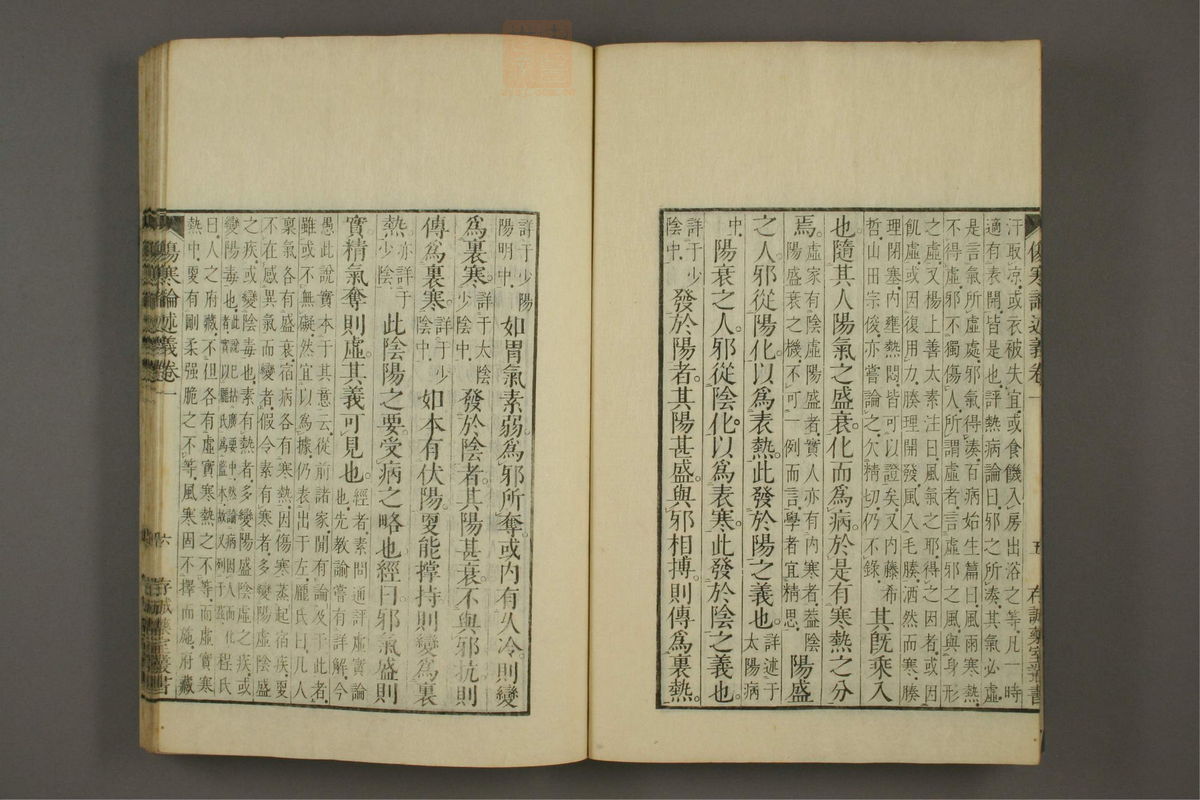 傷寒論述義卷一 五 存誠藥室叢書
汗取凉、或衣被失宜、或食饑入房、出浴之等、凡一時
適有表開、皆是也、評熱病論曰、邪之所湊、其氣必虛、
是言氣所虛處、邪氣得湊、百病始生篇曰、風雨寒熱、
不得虛、邪不獨傷人、所謂虛者、言虛邪之風、與身形
之虛、又楊上善太素注曰、風氣之邪、得之因者、或因
飢虛、或因復用力、腠理開發、風入毛腠、洒然而寒、腠
理閉塞、內壅熱悶、皆可以證矣、又內藤希
哲山田宗俊、亦嘗論之、欠精切、仍不錄、 其旣乘入
也、隨其人陽氣之盛衰、化而爲病、於是有寒熱之分
焉、虛家有陰虛陽盛者、實人亦有內寒者、蓋陰
陽盛衰之機、不可一例而言、學者宜精思、 陽盛
之人、邪從陽化、以爲表熱、此發於陽之義也、詳述于
太陽病
中、 陽衰之人、邪從陰化、以爲表寒、此發於陰之義也、
詳于少
陰中、 發於陽者、其陽甚盛、與邪相搏、則傳爲裏熱、
詳于少陽
陽明中、 如胃氣素弱、爲邪所奪、或內有久冷、則變
爲裏寒、詳于太陰
少陰中、 發於陰者、其陽甚衰、不與邪抗、則
傳爲裏寒、詳于少
陰中、 如本有伏陽、更能撐持、則變爲裏
熱、亦詳于
少陰、 此陰陽之要、受病之略也、經曰、邪氣盛則
實、精氣奪則虛、其義可見也、經者、素問通評虛實論
也、先教諭嘗有詳解、今
愚此說、實本于其意云、從前諸家、間有論及于此者、
雖或不無礙、然宜以爲據、仍表出于左、龐氏曰、凡人
稟氣各有盛衰、宿病各有寒熱、因傷寒蒸起宿疾、更
不在感異氣而變者、假令素有寒者、多變陽虛陰盛
之疾、或變陰毒也、素有熱者、多變陽盛陰虛之疾、或
變陽毒也、此說、活人書、廣要中、然論病因人而化
者、實以龐氏爲藍本、故又列于玆、 程氏
曰、人之府藏、不但各有虛實寒熱之不等、而虛實寒
熱中、更有剛柔强脆之不等、風寒固不擇而施、府藏
傷寒論述義卷一 六 存誠藥室叢書